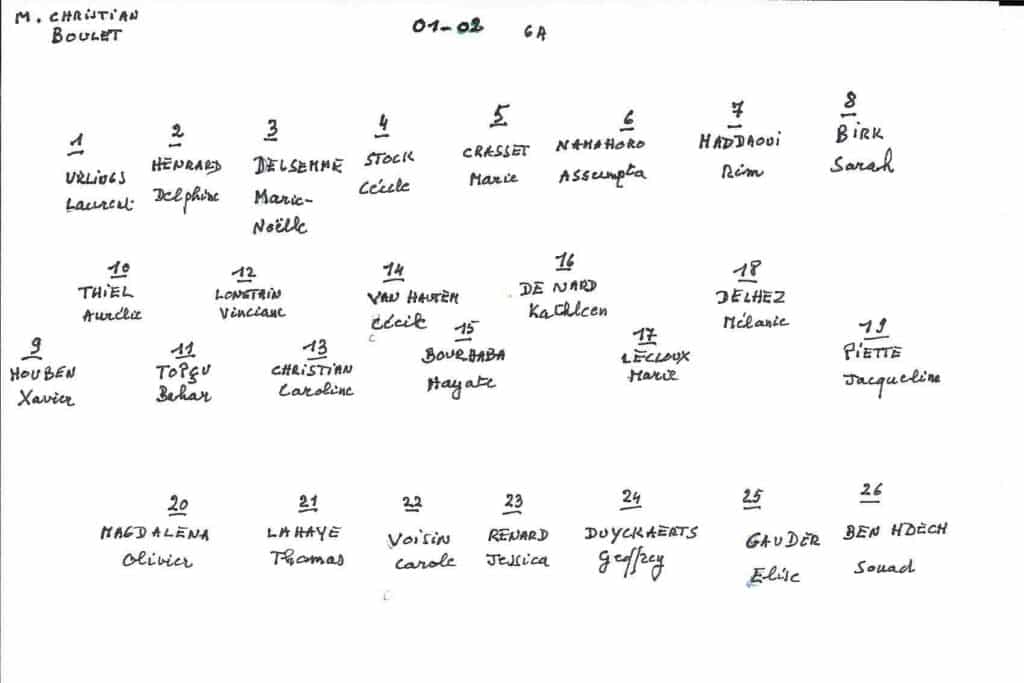 M. CHRISTIAN
BOULET
01-02 6A
1
URLINGS
Laurent
2
HENRARD
Delphine
3
DELSEMME
Marie-
Noëlle
4
STOCK
Cécile
5
CRASSET
Marie
6
NAHAHORO
Assumpta
7
HADDAOUI
Rim
8
BIRK
Sarah
9
HOUBEN
Xavier
10
THIEL
Aurélie
11
TOPÇU
Bahar
12
LONSTRIN
Vinciane
13
CHRISTIAN
Caroline
14
VAN HAUTEM
Cécile
15
BOURHABA
Hayate
16
DE NARD
Kathleen
17
LECLOUX
Marie
18
DELHEZ
Mélanie
19
PIETTE
Jacqueline
20
MAGDALENA
Olivier
21
LAHAYE
Thomas
22
VOISIN
Carole
23
RENARD
Jessica
24
DUYCKAERTS
Geoffrey
25
GAUDER
Elise
26
BEN HDECH
Souad